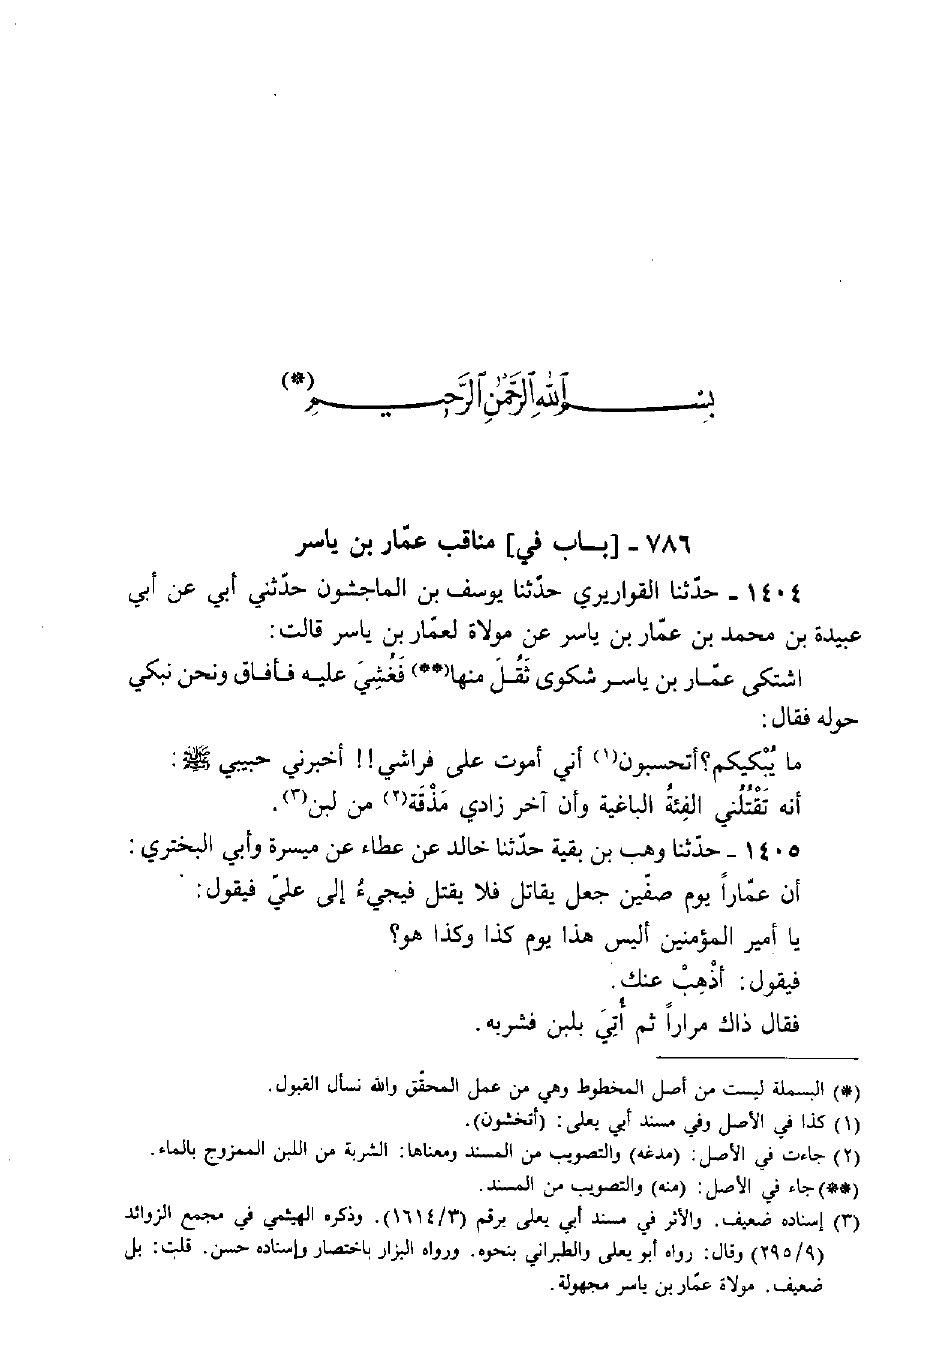 بِسْمِ اللهِ الرَّحْمٰنِ الرَّحِيمِ (*)
٧٨٦ - [بـاب في] مناقب عمّار بن ياسر
١٤٠٤ - حدّثنا القواريري حدّثنا يوسف بن الماجشون حدّثني أبي عن أبي
عبيدة بن محمد بن عمّار بن ياسر عن مولاة لعمّار بن ياسر قالت:
اشتكى عمّار بن ياسر شكوى ثَقُلَ منها(**) فَغُشِيَ عليه فأفاق ونحن نبكي
حوله فقال:
ما يُبْكيكم؟ أتحسبون(١) أني أموت على فراشي!! أخبرني حبيبي ﷺ:
أنه تَقْتُلُني الفِئةُ الباغية وأن آخر زادي مَذْقَة(٢) من لبن(٣).
١٤٠٥ - حدّثنا وهب بن بقية حدّثنا خالد عن عطاء عن ميسرة وأبي البختري:
أن عمّاراً يوم صفّين جعل يقاتل فلا يقتل فيجيءُ إلى عليّ فيقول:
يا أمير المؤمنين أليس هذا يوم كذا وكذا هو؟
فيقول: أذْهِبْ عنك.
فقال ذاك مراراً ثم أُتِيَ بلبن فشربه.
(*) البسملة ليست من أصل المخطوط وهي من عمل المحقّق والله نسأل القبول.
(١) كذا في الأصل وفي مسند أبي يعلى: (أتخشون).
(٢) جاءت في الأصل: (مدغه) والتصويب من المسند ومعناها: الشربة من اللبن الممزوج بالماء.
(**) جاء في الأصل: (منه) والتصويب من المسند.
(٣) إسناده ضعيف. والأثر في مسند أبي يعلى برقم (١٦١٤/٣). وذكره الهيثمي في مجمع الزوائد
(٢٩٥/٩) وقال: رواه أبو يعلى والطبراني بنحوه. ورواه البزار باختصار وإسناده حسن. قلت: بل
ضعيف. مولاة عمّار بن ياسر مجهولة.